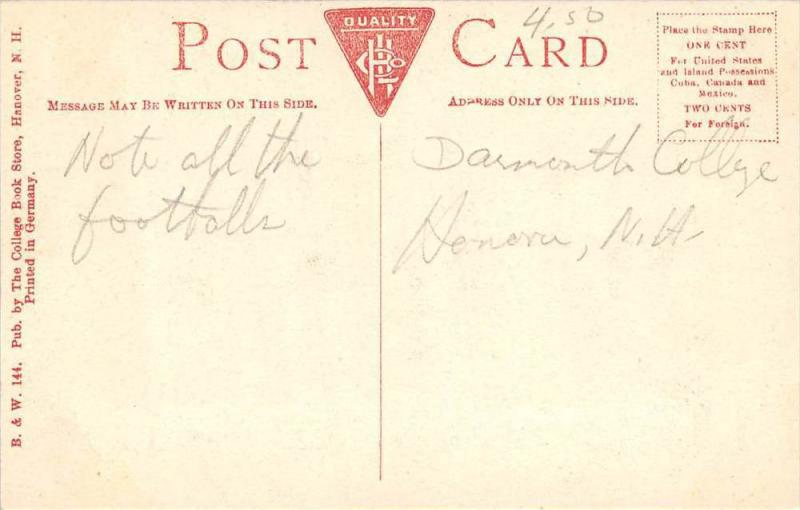 QUALITY
POST CARD
4.50
MESSAGE MAY BE WRITTEN ON THIS SIDE.
ADDRESS ONLY ON THIS SIDE.
Place the Stamp Here
ONE CENT
For United States
and Island Possessions
Cuba, Canada and
Mexico.
TWO CENTS
For Foreign.
Note all the
footballs
Darmonth College
Honover, N.H.
B. & W. 144. Pub. by The College Book Store, Hanover, N. H.
Printed in Germany.